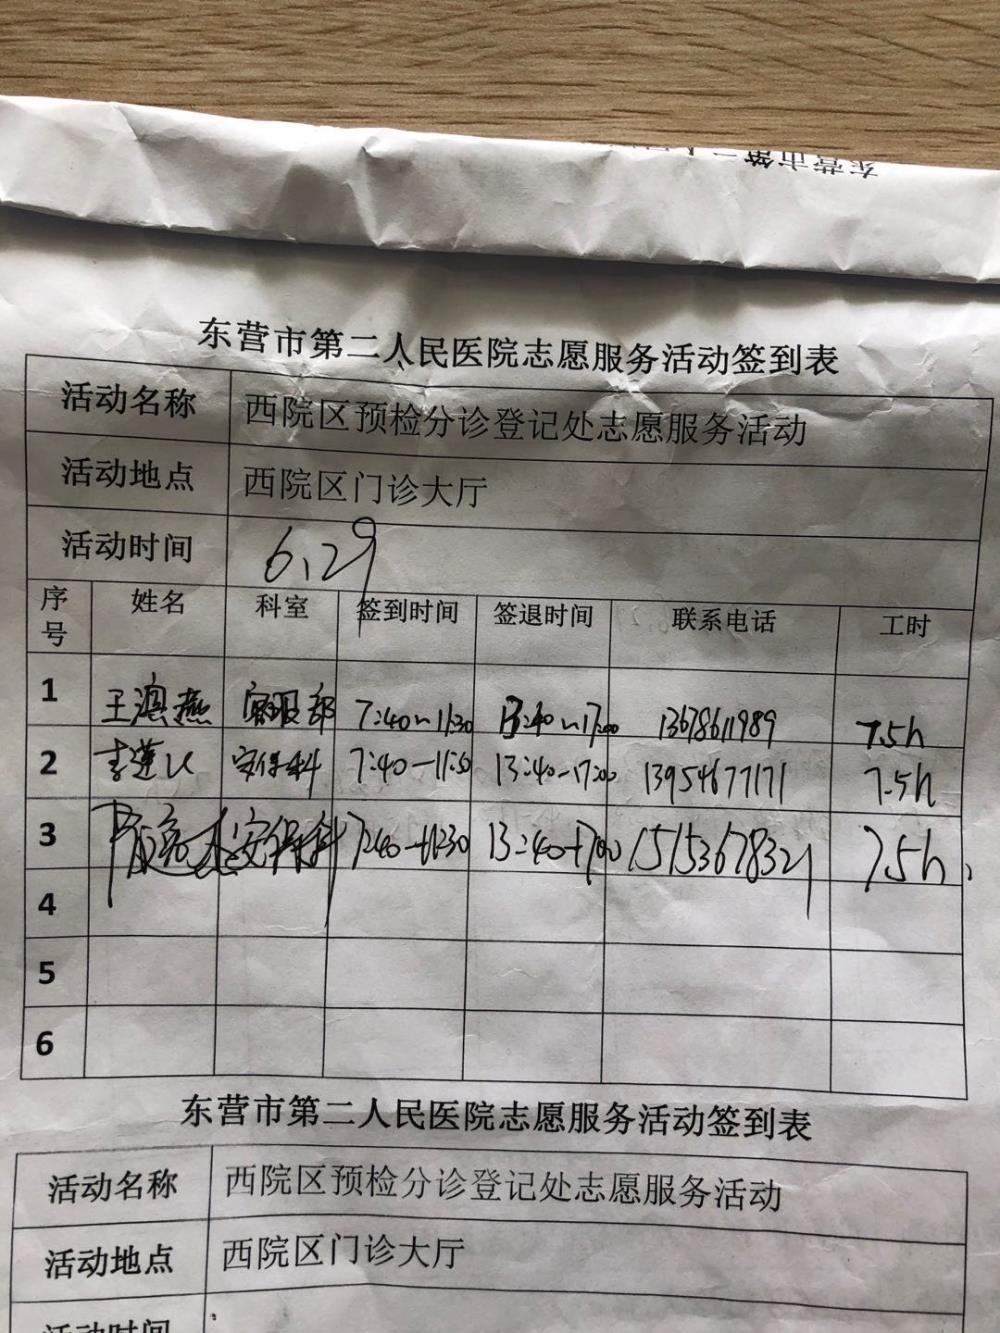 东营市第二人民医院志愿服务活动签到表
活动名称 西院区预检分诊登记处志愿服务活动
活动地点 西院区门诊大厅
活动时间 6.29
序号 姓名 科室 签到时间 签退时间 联系电话 工时
1 王滨燕 客服部 7:40~11:30 13:40~17:00 13678611989 7.5h
2 李莲 安保科 7:40-11:30 13:40-17:00 13954677171 7.5h
3 安保科 7:40-11:30 13:40-17:00 15153678321 7.5h
4
5
6
东营市第二人民医院志愿服务活动签到表
活动名称 西院区预检分诊登记处志愿服务活动
活动地点 西院区门诊大厅
活动时间